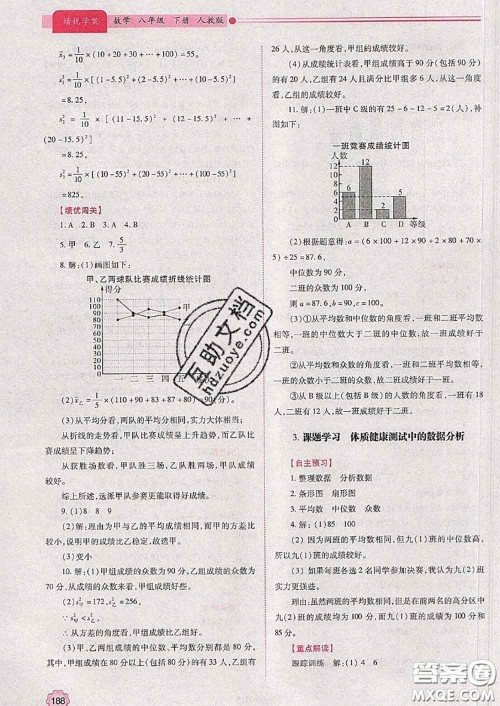 绩优学案 数学 八年级 下册 人教版
x̄₃ = 1/10 ×(10+15+…+20)
=15.5,
s₁² = 1/10 ×[(1-5.5)²+(2-5.5)²+…+(10-5.5)²]
=8.25,
s₂² = 1/10 ×[(11-15.5)²+(12-15.5)²+…+
(20-15.5)²]
=8.25,
s₃² = 1/10 ×[(10-55)²+(20-55)²+…+(100-55)²]
=825。
【绩优闯关】
1. A 2. B 3. A 4. B
5. 甲 6. 乙 7. 5/3
8. 解:(1)画图如下:
甲、乙两球队比赛成绩折线统计图
得分
110
100
90
80
70
60
50
40
30
20
10
0
一 二 三 四 五
甲
(2)x̄乙= 1/5 ×(110+90+83+87+80)=90(分)
(3)从平均分看,两队的平均分相同,实力大体相当;
从折线的走势看,甲队比赛成绩呈上升趋势,而乙队比赛成
绩呈下降趋势;
从获胜场数看,甲队胜三场,乙队胜两场,甲队成绩
较好。
综上所述,选派甲队参赛更能取得好成绩。
9. (1)8 8 9
(2)解:理由为甲与乙的平均成绩相同,而甲的方差
比较小,说明甲的成绩比乙稳定,故选甲参赛。
(3)变小
10. 解:(1)甲组成绩的众数为90分,乙组成绩的众数为
70分,从成绩的众数来看,甲组成绩好。
(2)∵s甲²=172,s乙²=256,
∴s甲²<s乙²。
∴从方差的角度看,甲组成绩比乙组好。
(3)甲、乙两组成绩的中位数、平均数分别都是80分,其
中,甲组成绩在80分以上(包括80分)的有33人,乙组有
188
26人,从这一角度看,甲组的成绩较好。
(4)从成绩统计表看,甲组成绩高于80分(包括90分)
的有20人,乙组有24人且满分比甲组多6人,从这一角度
看,乙组的成绩较好。
11. 解:(1)一班中C级的有25-6-12-5=2(人),补
图如图:
一班竞赛成绩统计图
人数
12
10
8
6
4
2
0
6
12
2
5
A B C D 等级
(2)根据题意得:a=(6×100+12×90+2×80+70×
5)÷25=87.6,
中位数为90分,
二班的众数为100分,
则a=87.6,b=90,c=100。
(3)①从平均数和中位数的角度看,一班和二班平均数
相等,一班的中位数大于二班的中位数,故一班成绩好于二
班。
②从平均数和众数的角度看,一班和二班平均数相等,
一班的众数小于二班的众数,故二班成绩好于一班。
③从B级以上(包括B级)的人数的角度看,一班有18
人,二班有12人,故一班成绩好于二班。
3. 课题学习 体质健康测试中的数据分析
【自主预习】
1. 整理数据 分析数据
2. 条形图 扇形图
3. 平均数 中位数 众数
4. 解:(1)85 100
(2)因为两班的平均数相同,九(1)班的中位数高,所
以九(1)班的复赛成绩好些。
(3)如果每班各选2名同学参加决赛,我认为九(2)班
实力更强些。
理由:虽然两班的平均数相同,但是在前两名的高分区中
九(2)班的成绩为100分,而九(1)班的成绩为100分和85分。
【重点解读】
跟踪训练 解:(1)4 6
互助文档
hzdzuoye.com
答案圈
MXQE.COM